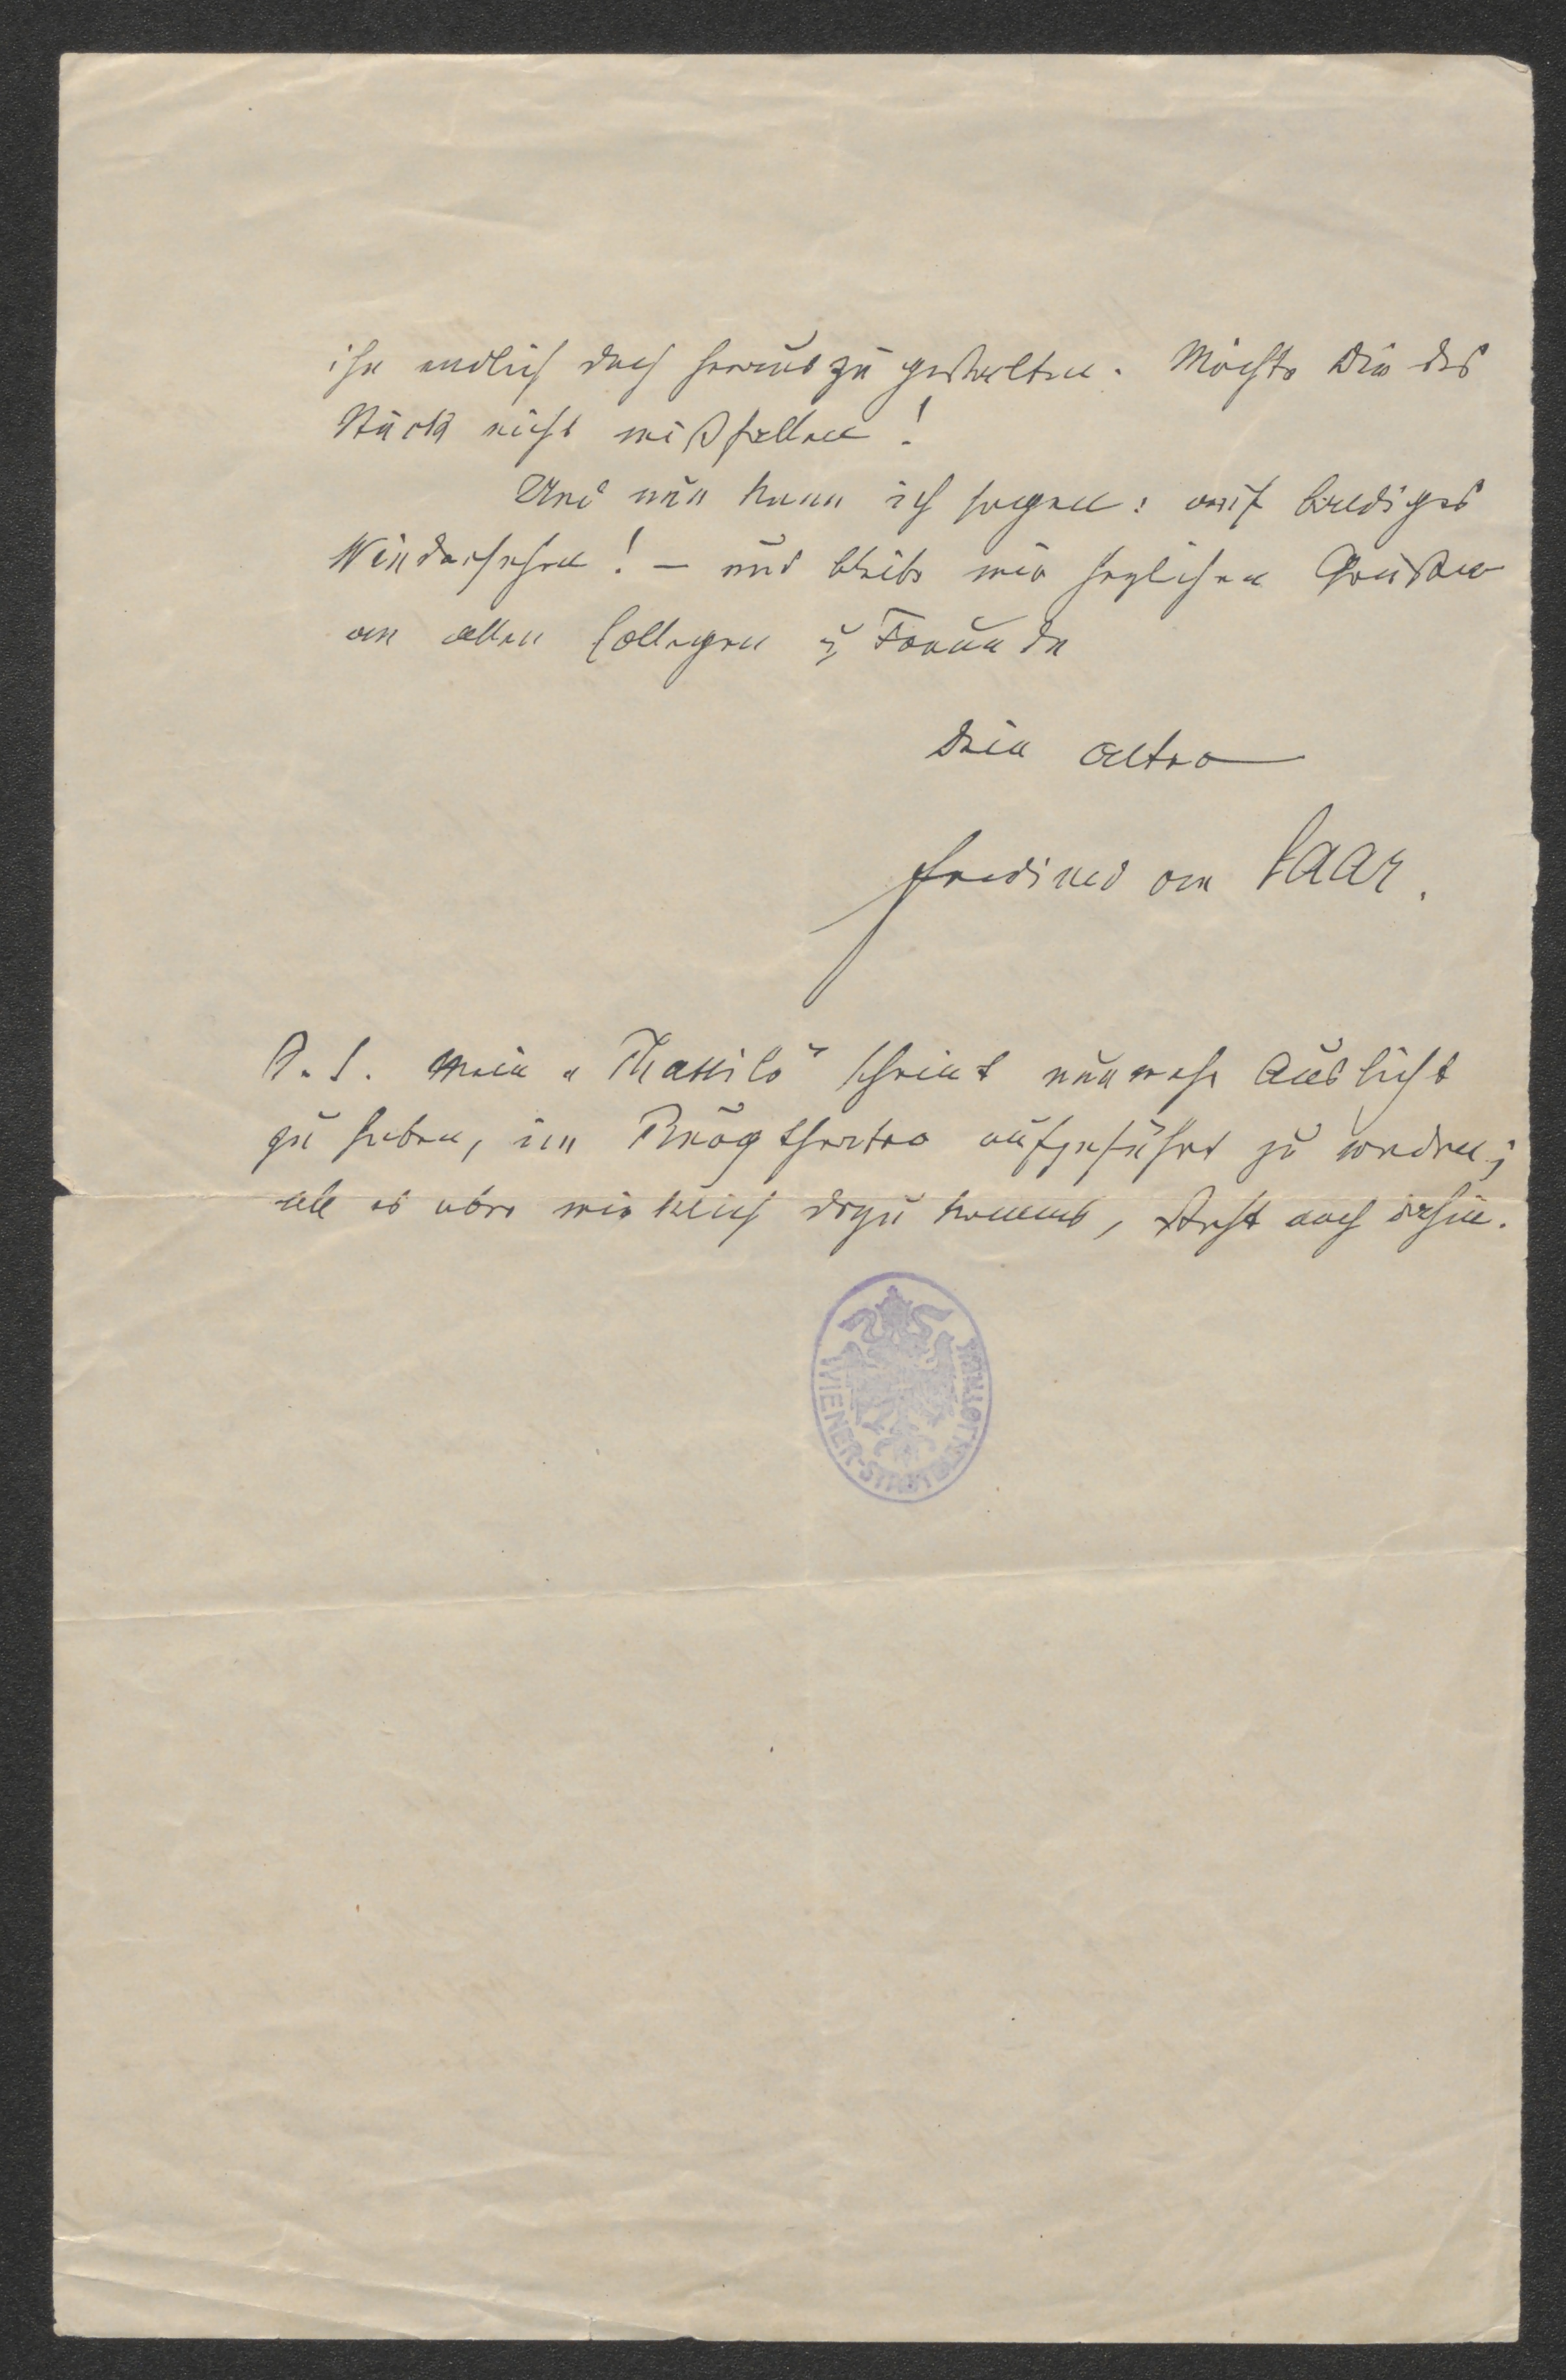 ihn endlich doch herauszugestalten. Möchte Dir das
Stück nicht mißfallen!
Und nun kann ich sagen: auf baldiges
Wiedersehen! – und bleibe mit herzlichen Grüßen
an alle Collegen u. Freunde
Dein alter
Ferdinand von Saar.
P. S. Mein „Thassilo" scheint nunmehr Aussicht
zu haben, im Burgtheater aufgeführt zu werden;
ob es aber wirklich dazu kommt, steht noch dahin.
WIENER-STADTBIBLIOTHEK